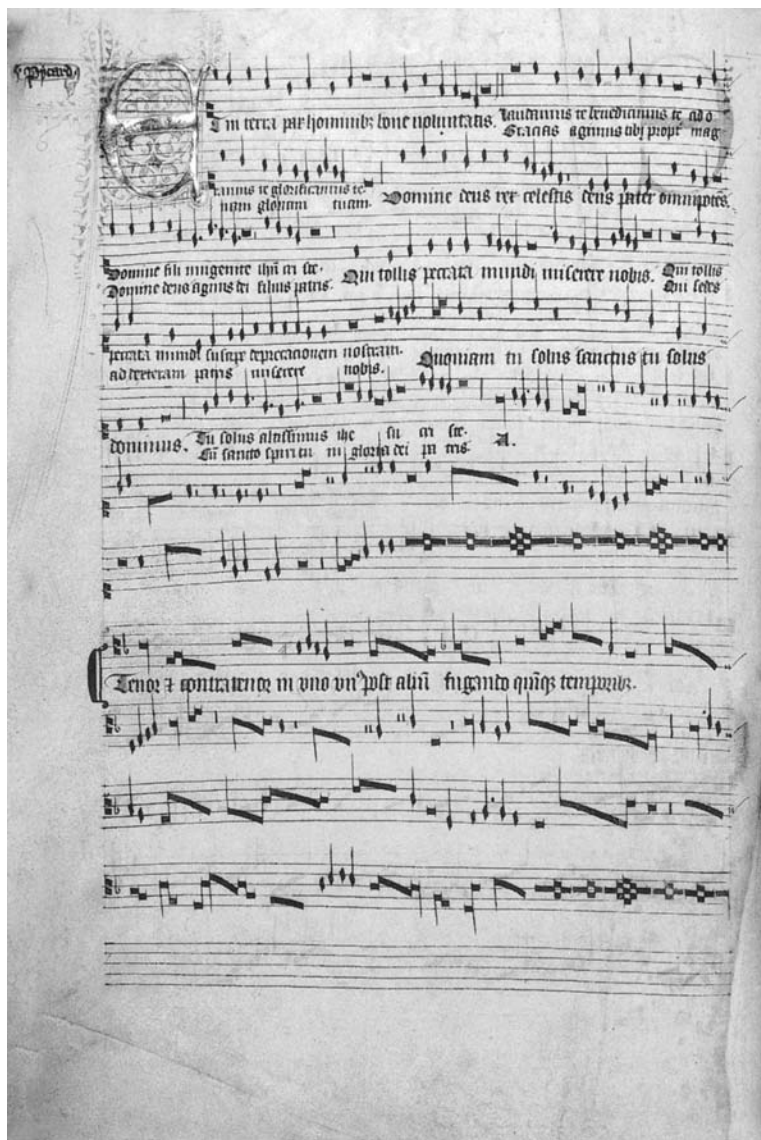 Pycard
Et in terra pax hominibȝ bone voluntatis. Laudamus te benedicimus te ado
Gracias agimus tibi propt' mag
ramus te glorificamus te.
nam gloriam tuam. Domine deus rex celestis deus pater omnipotēs.
Domine fili unigenite ihū cri ste. Qui tollis
Domine deus agnus dei filius patris. Qui tollis peccata mundi miserere nobis. Qui sedes
peccata mundi suscipe deprecacionem nostram.
ad dexteram patris miserere nobis. Quoniam tu solus sanctus tu solus
dominus. Tu solus altissimus ihe su cri ste. A.
Cū sancto spiritu in gloria dei pa tris
Tenor & contratenor in uno vn' post aliū fugando quīqȝ temporibȝ.